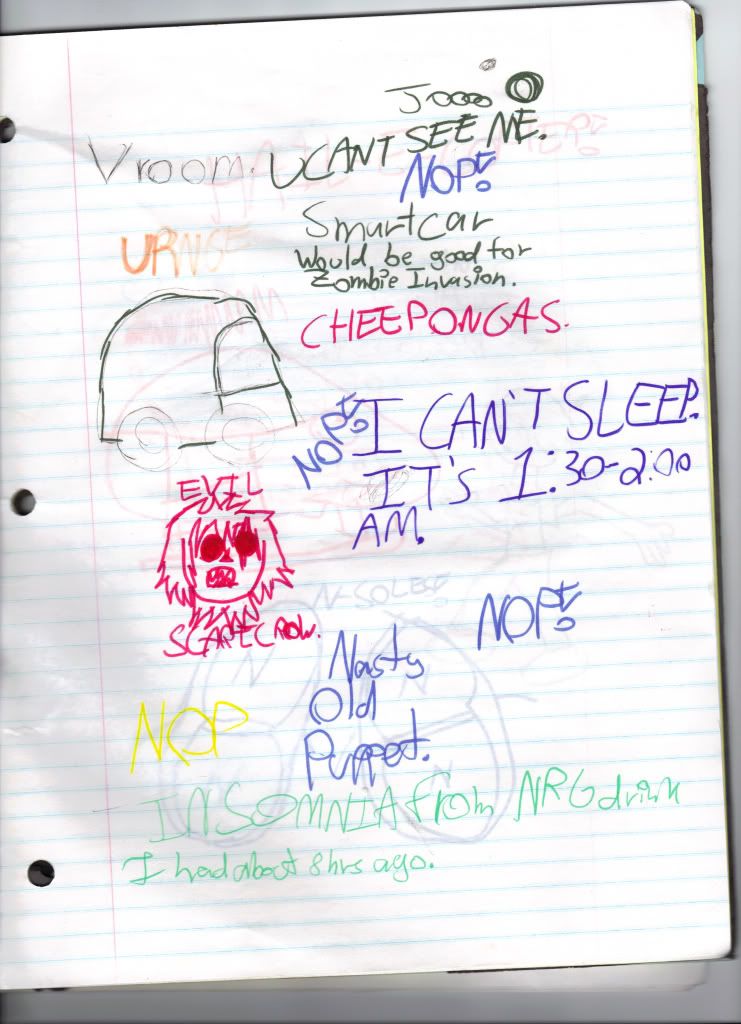 Joooo
U CANT SEE ME.
Vroom.
NOP!
Smurtcar
Would be good for
Zombie Invasion.
URNSE
CHEEPONGAS.
NOP!
I CAN'T SLEEP.
IT'S 1:30-2:00
AM.
EVIL
SCARECROW.
NOP!
Nasty
Old
Puppet.
NOP
INSOMNIA from NRG drink
I had about 8 hrs ago.